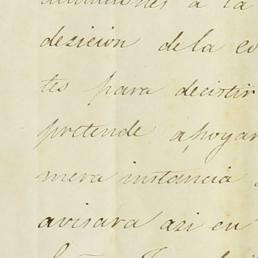 a la
dezicion de la co
tes para decistir
pretende apoyar
mera instancia
avisara asi en